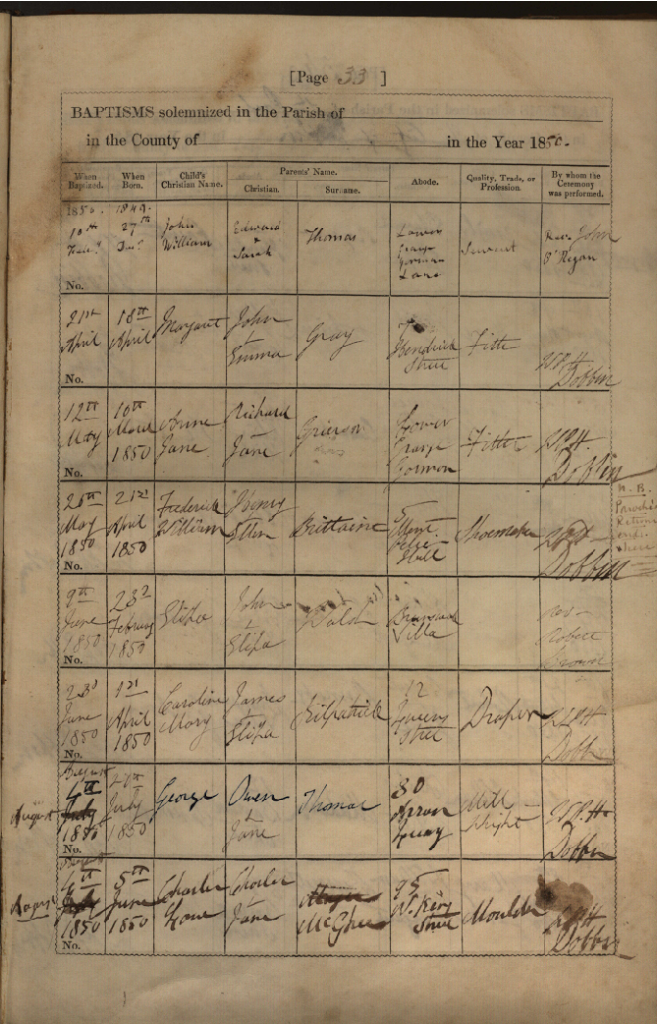 [Page 33 ]
BAPTISMS solemnized in the Parish of
in the County of in the Year 1850.
When Baptized. When Born. Child's Christian Name. Parents' Name. Christian. Surname. Abode. Quality, Trade, or Profession. By whom the Ceremony was performed.
1850. 1849.
10th 27th John Edward Thomas Lower Servant Revd. John
William & Sarah Grange O'Regan
Gorman
Lane
No.
21st 18th Margaret John Gray 7 Fitter
April April & Hendrick
Emma Street Dobbin
No.
12th 10th Anne Richard Grierson Lower Fitter
May Jane & Grange
1850 Jane Gorman Dobbin
No.
20th 21st Frederick Henry Brittaine 5 Shoemaker
May April William & Mount
1850 1850 Ellen Street Dobbin
N.B.
No.
9th 23d Eliza John Walsh Brunswick
June February & Villa Robert
1850 1850 Eliza
No.
23d 1st Caroline James Kilpatrick 12 Draper
June April Mary & Queen
1850 1850 Eliza Street Dobbin
No.
August
August 4th July George Owen Thomas 30 Mill
July 1850 & Arran Wright
1850 Jane Quay Dobbin
No.
August
August 5th Charles Charles 95 Moulder
June & McGhee N. King
1850 1850 Jane Street Dobbin
No.